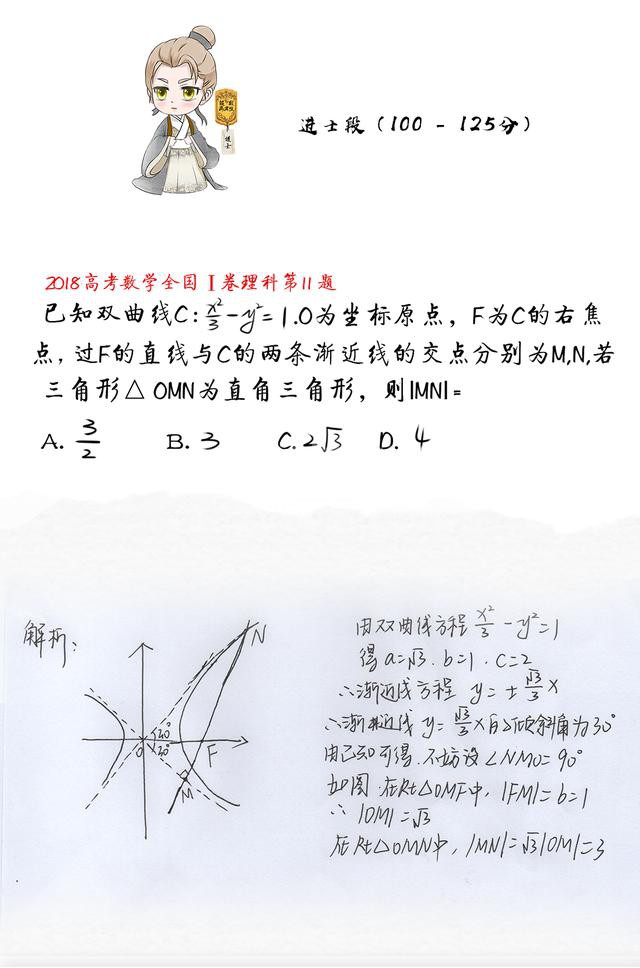 进士
进士段（100 - 125分）
2018高考数学全国Ⅰ卷理科第11题
已知双曲线C:x²/3-y²=1.O为坐标原点，F为C的右焦
点,过F的直线与C的两条渐近线的交点分别为M,N,若
三角形△OMN为直角三角形，则|MN|=
A. 3/2 B. 3 C. 2√3 D. 4
解析:
N
30°
O
30°
F
M
由双曲线方程 x²/3-y²=1
得a=√3. b=1. c=2
∴渐近线方程 y=±√3/3 x
∴渐近线 y=√3/3 x的倾斜角为30°
由已知可得.不妨设∠NMO=90°
如图.在Rt△OMF中, |FM|=b=1
∴ |OM|=√3
在Rt△OMN中, |MN|=√3|OM|=3